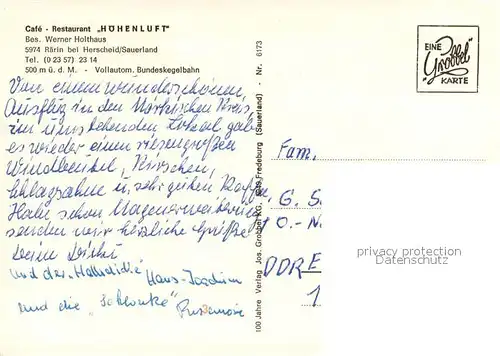 Café - Restaurant „HÖHENLUFT"
Bes. Werner Holthaus
5974 Rärin bei Herscheid/Sauerland
Tel. (0 23 57) 23 14
500 m ü. d. M. - Vollautom. Bundeskegelbahn
Von einem wunderschönen
Ausflug in den Märkischen Kreis
im umstehenden Lokal gab
es wieder einen riesengroßen
Windbeutel, Kirschen,
Schlagsahne u. sehr guten Kaffee.
Habe schon Magenerweiterung
senden wir herzliche Grüße
Deine
und der
Hans-Joachim
und die
100 Jahre Verlag Jos. Grobbel KG, Fredeburg (Sauerland) - Nr. 6173
EINE
Grobbel
KARTE
Fam.
G. S.
O.-N.
DDR
1
privacy protection
Datenschutz